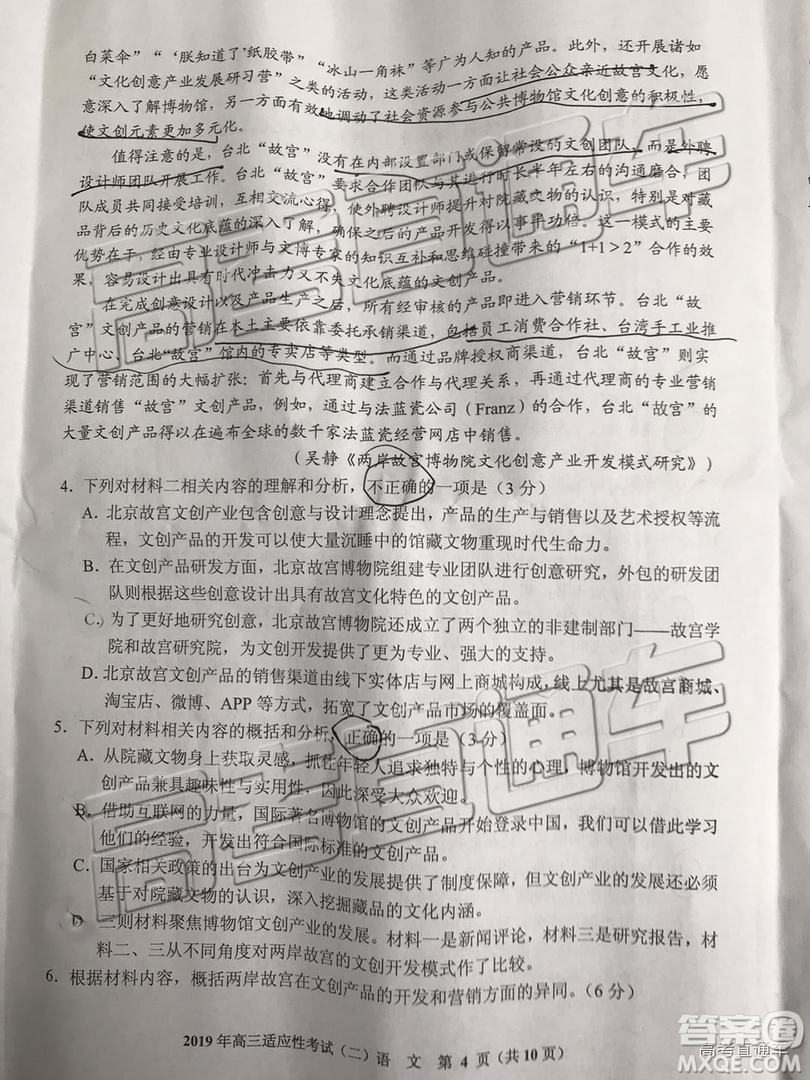 白菜伞”“‘朕知道了’纸胶带”“冰山一角袜”等广为人知的产品。此外，还开展诸如
“文化创意产业发展研习营”之类的活动，这类活动一方面让社会公众亲近故宫文化，愿
意深入了解博物馆，另一方面有效地调动了社会资源参与公共博物馆文化创意的积极性，
使文创元素更加多元化。
值得注意的是，台北“故宫”没有在内部设置部门或保留常设的文创团队，而是外聘
设计师团队开展工作。台北“故宫”要求合作团队与其进行时长半年左右的沟通磨合，团
队成员共同接受培训，互相交流心得，使外聘设计师提升对院藏文物的认识，特别是对藏
品背后的历史文化底蕴的深入了解，确保之后的产品开发得以事半功倍。这一模式的主要
优势在于，经由专业设计师与文博专家的知识互补和思维碰撞带来的“1+1＞2”合作的效
果，容易设计出具有时代冲击力又不失文化底蕴的文创产品。
在完成创意设计以及产品生产之后，所有经审核的产品即进入营销环节。台北“故
宫”文创产品的营销在本土主要依靠委托承销渠道，包括员工消费合作社、台湾手工业推
广中心、台北“故宫”馆内的专卖店等类型。而通过品牌授权商渠道，台北“故宫”则实
现了营销范围的大幅扩张：首先与代理商建立合作与代理关系，再通过代理商的专业营销
渠道销售“故宫”文创产品，例如，通过与法蓝瓷公司（Franz）的合作，台北“故宫”的
大量文创产品得以在遍布全球的数千家法蓝瓷经营网店中销售。
（吴静《两岸故宫博物院文化创意产业开发模式研究》）
4．下列对材料二相关内容的理解和分析，不正确的一项是（3 分）
A．北京故宫文创产业包含创意与设计理念提出，产品的生产与销售以及艺术授权等流
程，文创产品的开发可以使大量沉睡中的馆藏文物重现时代生命力。
B．在文创产品研发方面，北京故宫博物院组建专业团队进行创意研究，外包的研发团
队则根据这些创意设计出具有故宫文化特色的文创产品。
C．为了更好地研究创意，北京故宫博物院还成立了两个独立的非建制部门——故宫学
院和故宫研究院，为文创开发提供了更为专业、强大的支持。
D．北京故宫文创产品的销售渠道由线下实体店与网上商城构成，线上尤其是故宫商城、
淘宝店、微博、APP 等方式，拓宽了文创产品市场的覆盖面。
5．下列对材料相关内容的概括和分析，正确的一项是（3 分）
A．从院藏文物身上获取灵感，抓住年轻人追求独特与个性的心理，博物馆开发出的文
创产品兼具趣味性与实用性，因此深受大众欢迎。
B．借助互联网的力量，国际著名博物馆的文创产品开始登录中国，我们可以此学习
他们的经验，开发出符合国际标准的文创产品。
C．国家相关政策的出台为文创产业的发展提供了制度保障，但文创产业的发展还必须
基于对院藏文物的认识，深入挖掘藏品的文化内涵。
D．三则材料聚焦博物馆文创产业的发展。材料一是新闻评论，材料三是研究报告，材
料二、三从不同角度对两岸故宫的文创开发模式作了比较。
6．根据材料内容，概括两岸故宫在文创产品的开发和营销方面的异同。（6 分）
2019 年高三适应性考试（二）语 文 第 4 页（共 10 页）
高考直通车
答案圈
高考直通车